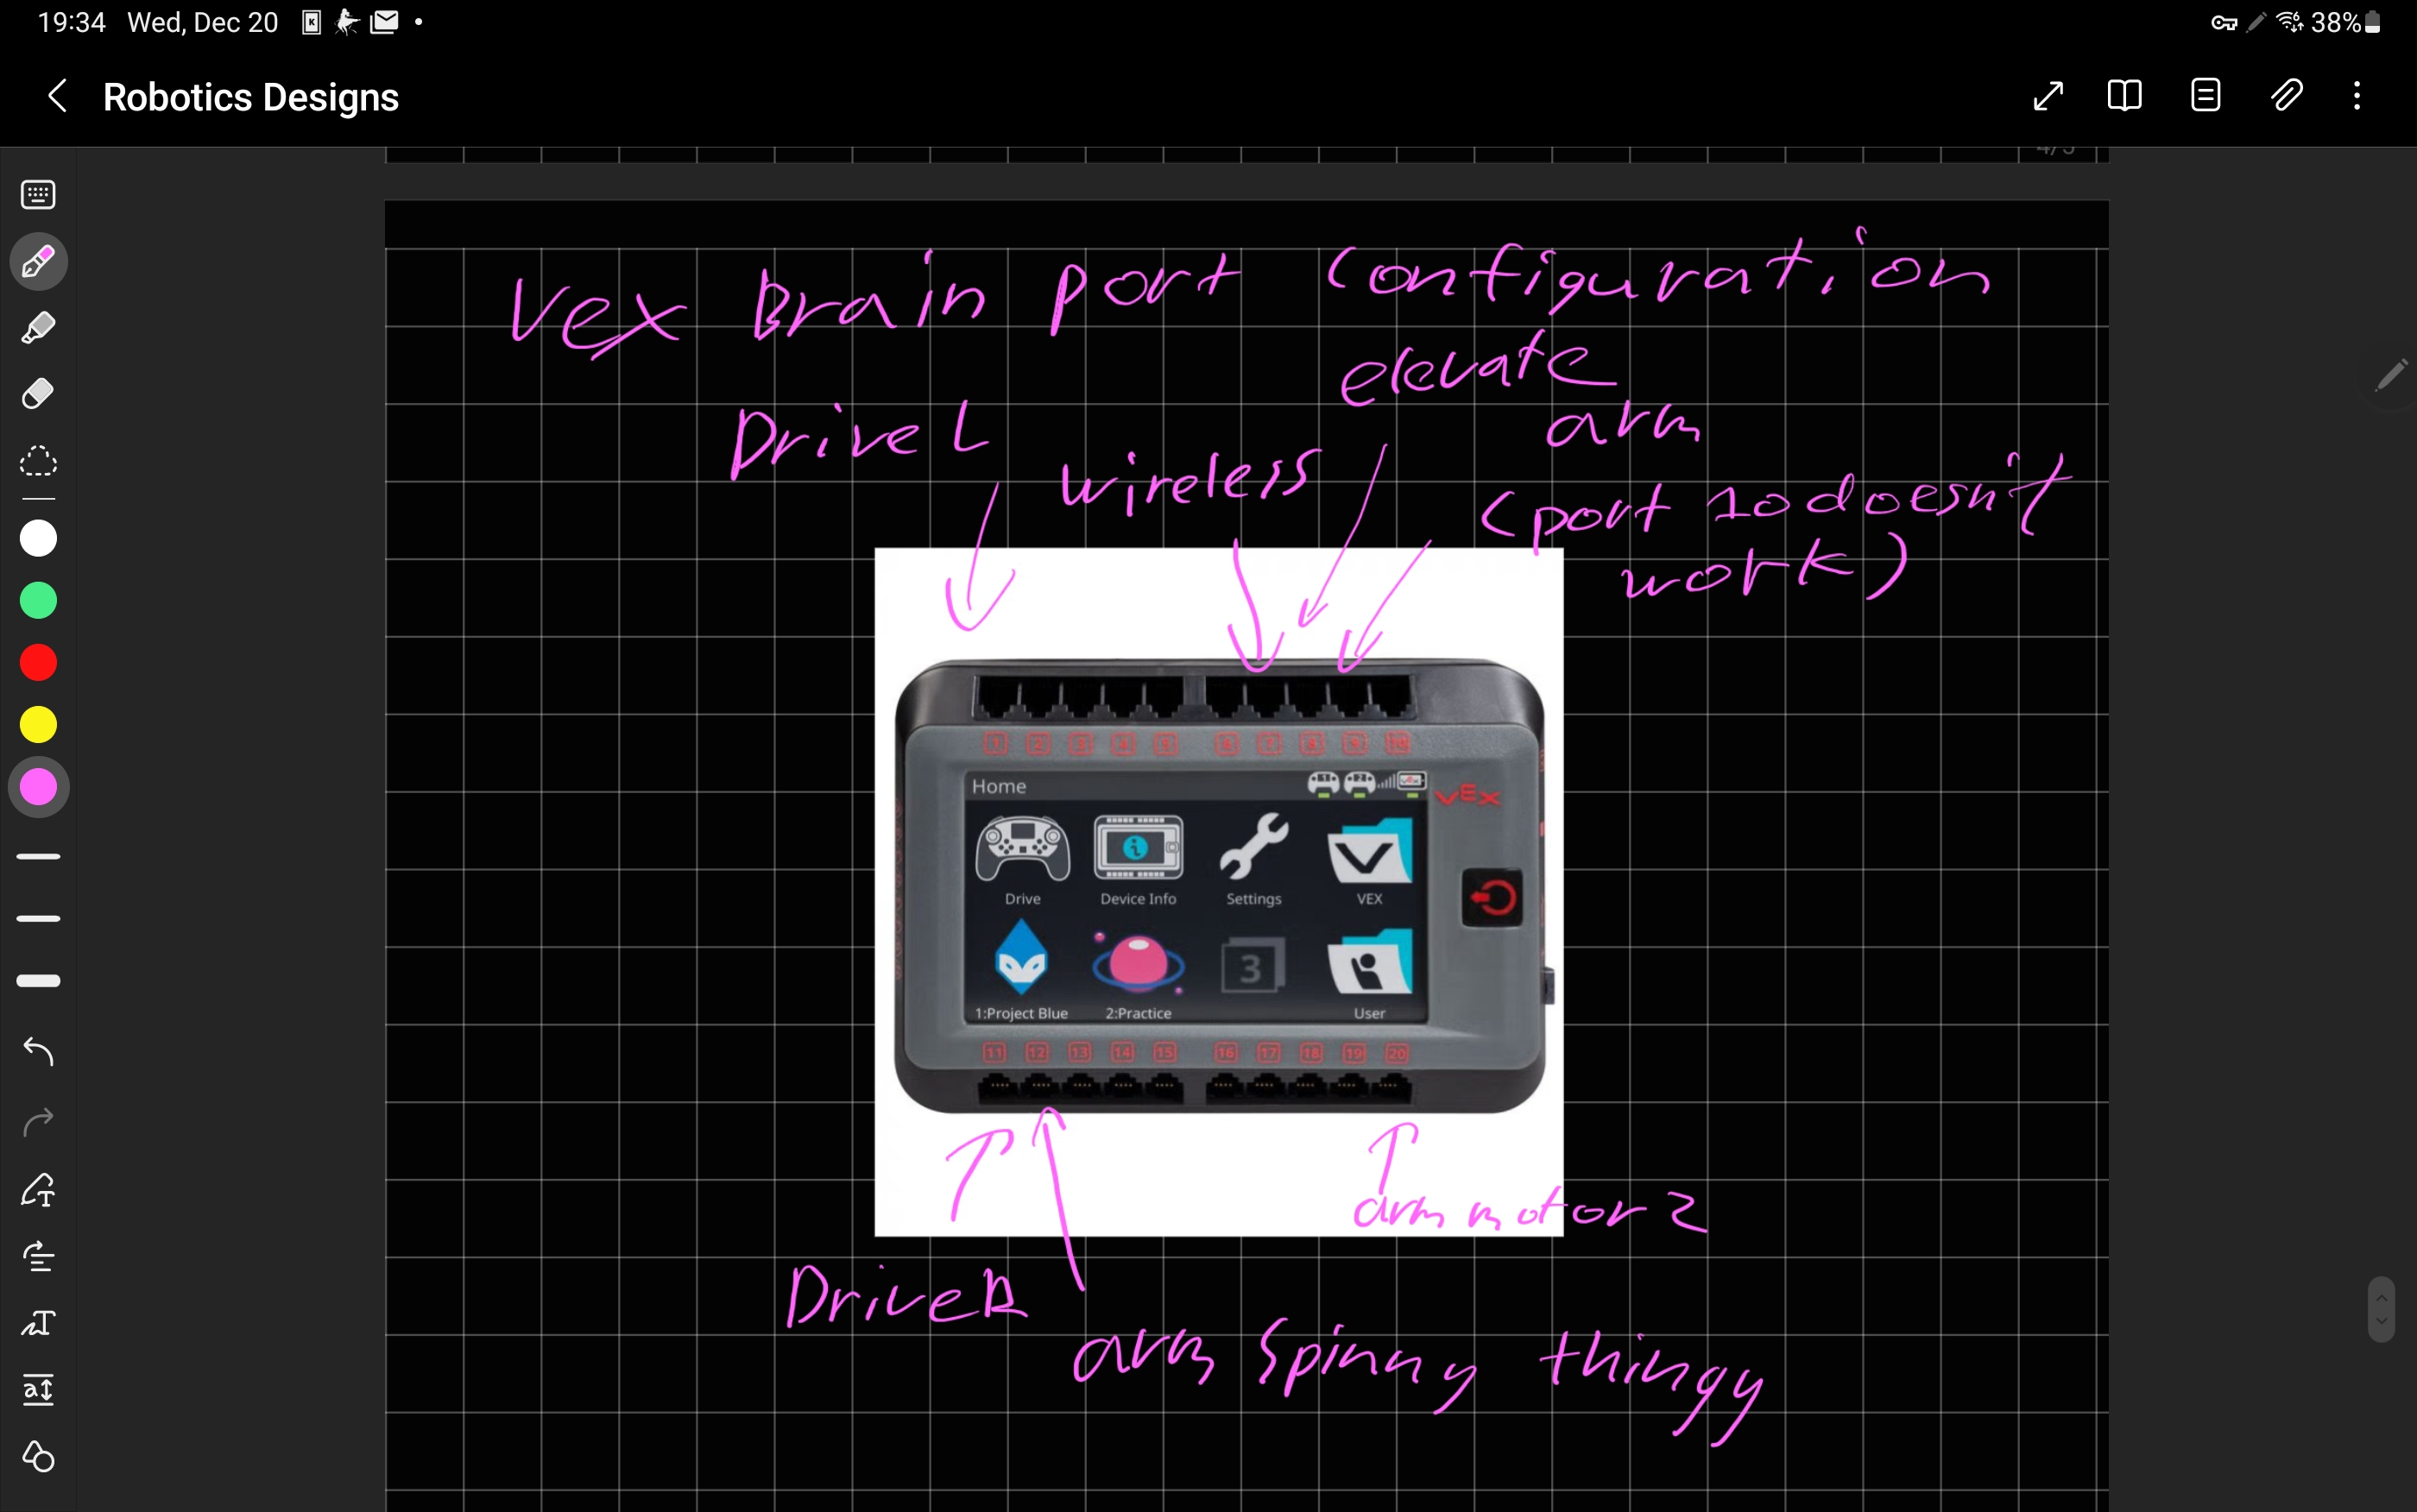 19:34 Wed, Dec 20
38%
Robotics Designs
Vex Brain port configuration
elevate
arm
Drive L
wireless
(port 10 doesn't
work)
1 2 3 4 5 6 7 8 9 10
Home
VEX
Drive Device Info Settings VEX
3
1:Project Blue 2:Practice User
11 12 13 14 15 16 17 18 19 20
arm motor 2
Drive R
arm spinny thingy